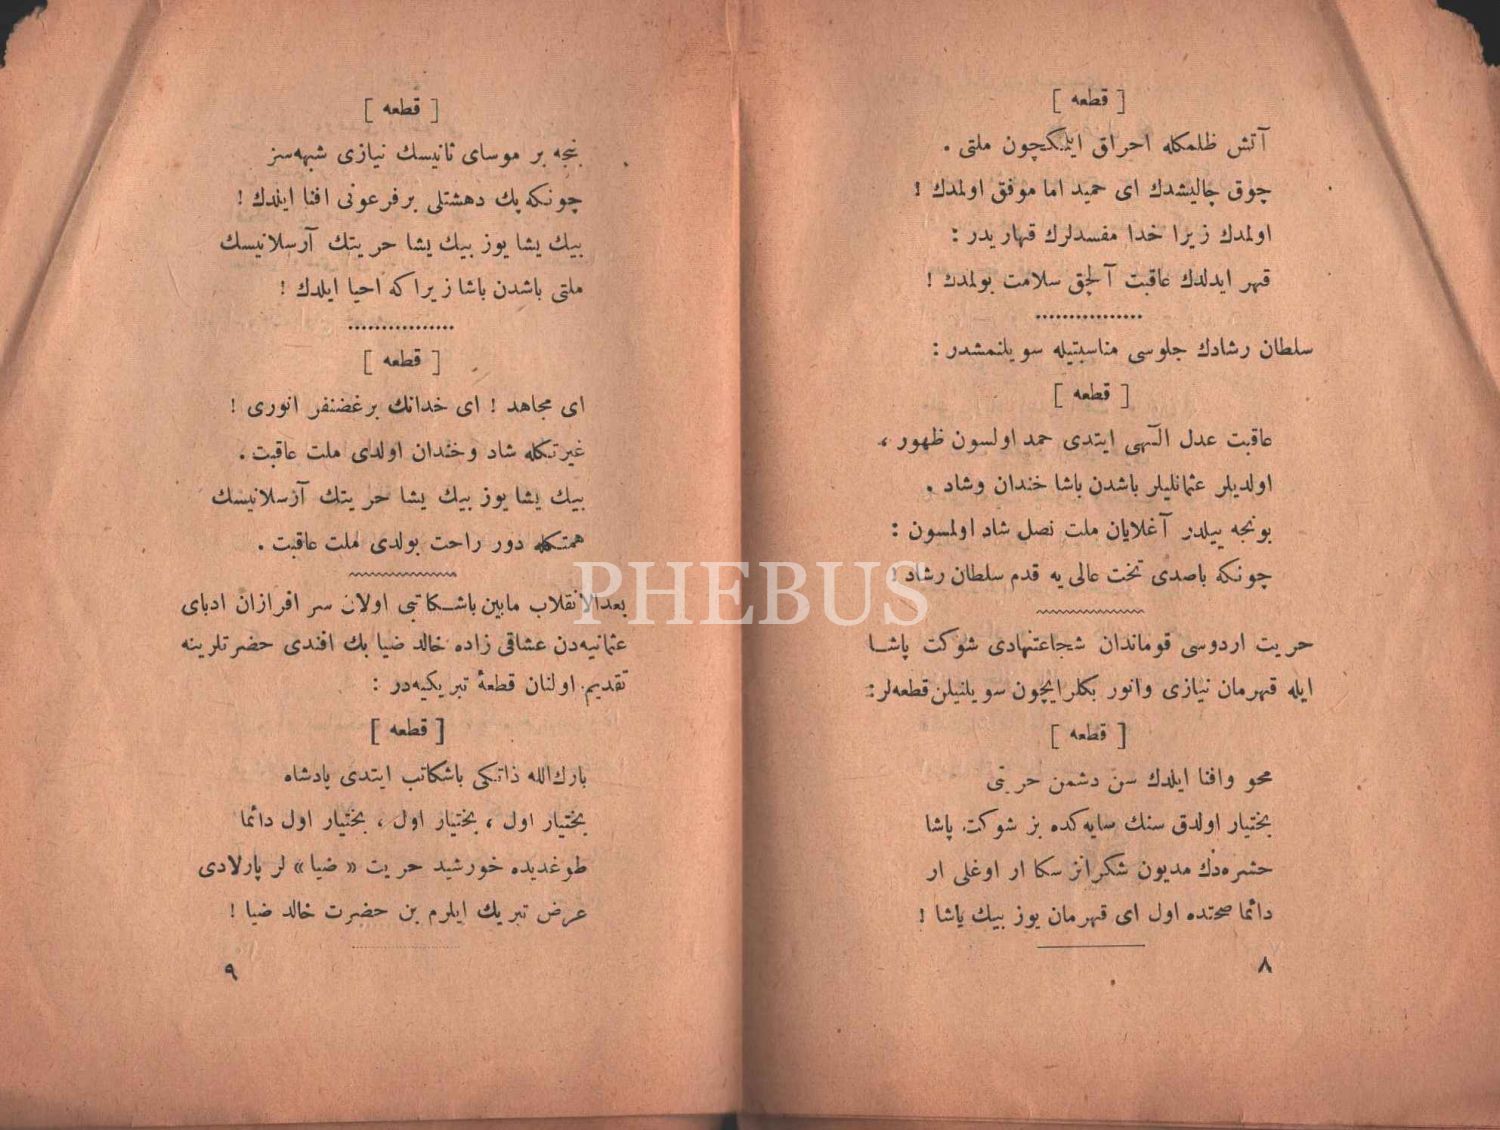 [ قطعه ]
آتش ظلمكله احراق ايلمكچون ملتی .
چوق چاليشدك ای حميد اما موفق اولمدك !
اولمدك زيرا خدا مفسدلرك قهاريدر :
قهر ايدلدك عاقبت آلچق سلامت بولمدك !
سلطان رشادك جلوسی مناسبتيله سويلنمشدر :
[ قطعه ]
عاقبت عدل الٓهی ايتدی حمد اولسون ظهور ،
اولديلر عثمانليلر باشدن باشا خندان وشاد .
بونجه ييلدر آغلايان ملت نصل شاد اولمسون :
چونكه باصدی تخت عالی يه قدم سلطان رشاد !
حريت اردوسی قوماندان شجاعتنهادی شوكت پاشا
ايله قهرمان نيازی وانور بكلر ايچون سويلنيلن قطعه‌لر :
[ قطعه ]
محو وافنا ايلدك سن دشمن حريتی
بختيار اولدق سنك سايه‌كده بز شوكت پاشا
حشره‌دك مديون شكرانز سكا ار اوغلی ار
دائما صحتده اول ای قهرمان يوز بيك ياشا !
٨
[ قطعه ]
بنجه بر موسای ثانيسك نيازی شبهه‌سز
چونكه پك دهشتلی بر فرعونی افنا ايلدك !
بيك يشا يوز بيك يشا حريتك آرسلانيسك
ملتی باشدن باشا زيراكه احيا ايلدك !
[ قطعه ]
ای مجاهد ! ای خدانك بر غضنفر انوری !
غيرتكله شاد وخندان اولدی ملت عاقبت .
بيك يشا يوز بيك يشا حريتك آرسلانيسك
همتكله دور راحت بولدی ملت عاقبت .
بعدالانقلاب مابين باشكاتبی اولان سر افرازان ادبای
عثمانيه‌دن عشاقی زاده خالد ضيا بك افندی حضرتلرينه
تقديم اولنان قطعهٔ تبريكيه‌در :
[ قطعه ]
بارك‌الله ذاتكی باشكاتب ايتدی پادشاه
بختيار اول ، بختيار اول ، بختيار اول دائما
طوغديده خورشيد حريت « ضيا » لر پارلادی
عرض تبريك ايلرم بن حضرت خالد ضيا !
٩
PHEBUS